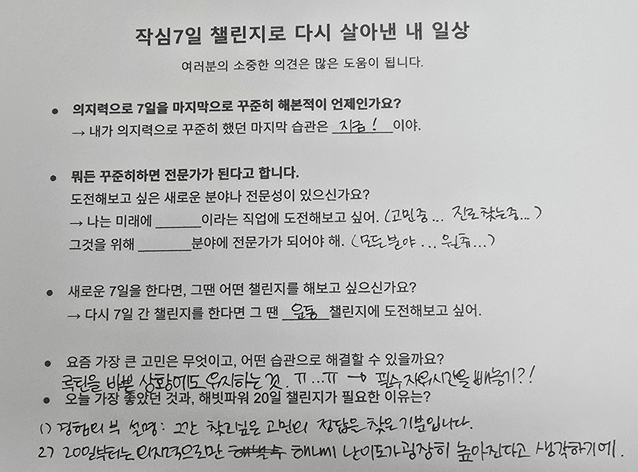 작심7일 챌린지로 다시 살아낸 내 일상
여러분의 소중한 의견은 많은 도움이 됩니다.
• 의지력으로 7일을 마지막으로 꾸준히 해본적이 언제인가요?
→ 내가 의지력으로 꾸준히 했던 마지막 습관은 지금! 이야.
• 뭐든 꾸준히하면 전문가가 된다고 합니다.
도전해보고 싶은 새로운 분야나 전문성이 있으신가요?
→ 나는 미래에 ______이라는 직업에 도전해보고 싶어. (고민중... 진로찾는중...)
그것을 위해 ______분야에 전문가가 되어야 해. (모든분야... ...)
• 새로운 7일을 한다면, 그땐 어떤 챌린지를 해보고 싶으신가요?
→ 다시 7일 간 챌린지를 한다면 그 땐 운동 챌린지에 도전해보고 싶어.
• 요즘 가장 큰 고민은 무엇이고, 어떤 습관으로 해결할 수 있을까요?
루틴을 바쁜 상황에도 유지하는 것. ㅠ...ㅠ → 필수 자유시간을 빼놓기?!
• 오늘 가장 좋았던 것과, 해빗파워 20일 챌린지가 필요한 이유는?
1) 경험의 부 설명: 그간 찾던 고민의 정답을 찾은 기분입니다.
2) 20일부터는 의지력으로만 해내기 난이도가 굉장히 높아진다고 생각하기에.